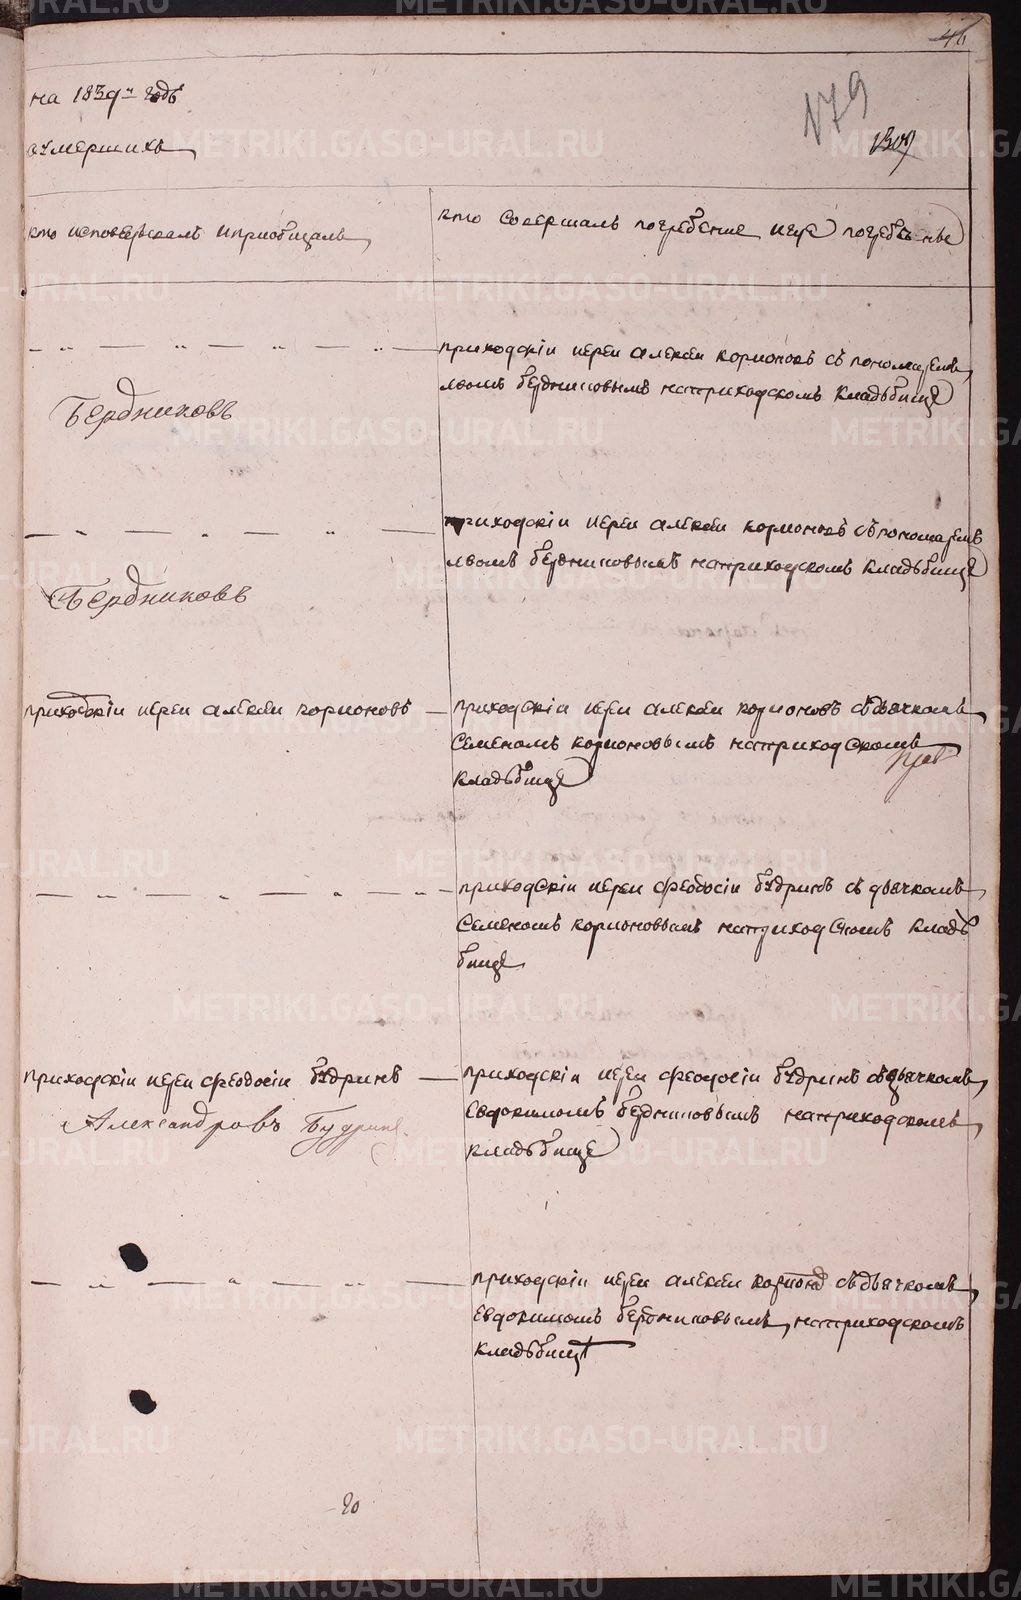 46
179
1309
на 1839й годъ
оумершихъ
кто исповедывалъ и приобщалъ
кто совершалъ погребение и где погребены
приходскiи иереи алексеи корионовъ съ пономаремъ
львомъ бердниковымъ на приходскомъ кладбище
Бердниковъ
приходскiи иереи алексеи корионовъ съ пономаремъ
львомъ бердниковымъ на приходскомъ кладьбище
Бердниковъ
приходскiи иереи алексеи корионовъ
приходскiи иереи алексеи корионовъ съ дьячкомъ
семеномъ корионовымъ на приходскомъ
кладьбище
приходскiи иереи феодосiи будринъ съ дьячкомъ
семеномъ корионовымъ на приходскомъ кладь
бище
приходскiи иереи феодосiи будринъ
приходскiи иереи феодосiи будринъ съ дьячкомъ
Александровъ Будринъ
евдокимомъ бердниковымъ на приходскомъ
кладьбище
приходскiи иереи алексеи корионо съ дьячкомъ
евдокимомъ бердниковымъ на приходскомъ
кладьбище
20
METRIKI.GASO-URAL.RU